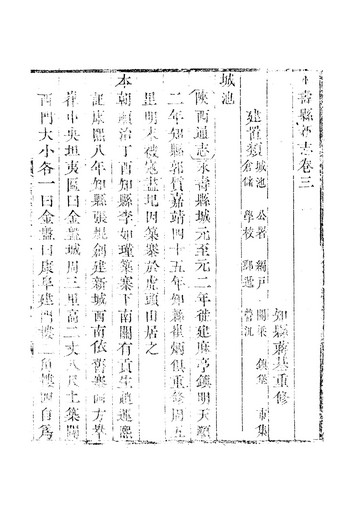 壽縣新志卷三
知縣蔣基重修
建置類 城池 公署 鋪戶 關梁 鎮堡 市集
倉儲 學校 郵遞
城池
陝西通志永壽縣城元至元二年徙建麻亭鎮明天順
二年知縣郭質嘉靖四十五年知縣崔炳俱重修周五
里明末被寇盡圮因築寨於虎頭山居之
本朝順治丁酉知縣李如瑾築寨下南關有貢生趙運熙
証康熙八年知縣張焜創建新城西南依舊寨四方畢
葺中央坦夷區曰金盤城周三里高二丈八尺土築闢
西門大小各一曰金盤曰康阜建門樓二角樓四自為